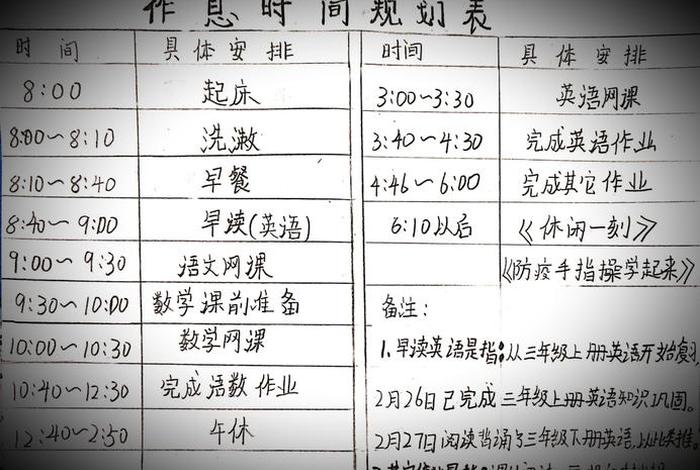 作息时间规划表
时 间 具体安排
8:00 起床
8:00～8:10 洗漱
8:10～8:40 早餐
8:40～9:00 早读(英语)
9:00～9:30 语文网课
9:30～10:00 数学课前准备
10:00～10:30 数学网课
10:40～12:30 完成语数作业
12:40～2:50 午休
时间 具体安排
3:00～3:30 英语网课
3:40～4:30 完成英语作业
4:46～6:00 完成其它作业
6:10以后 《休闲一刻》
《防疫手指操学起来》
备注:
1.早读英语是指:从三年级上册英语开始复习
2月26日已完成三年级上册英语知识巩固。
2月27日阅读背诵与三年级下册英语,以此类推